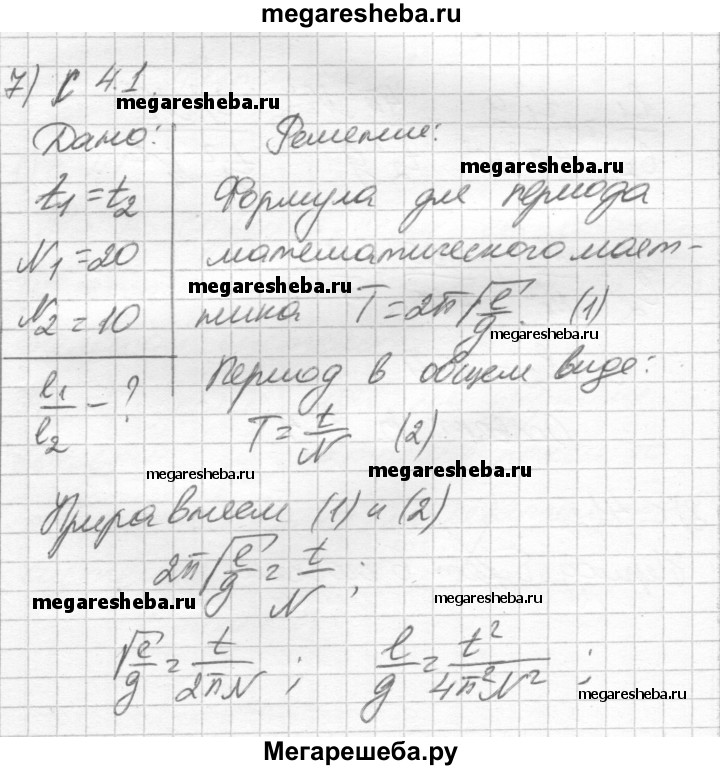 megaresheba.ru
7) § 4.1.
megaresheba.ru
Дано:
t₁ = t₂
N₁ = 20
N₂ = 10
l₁/l₂ - ?
Решение:
megaresheba.ru
Формула для периода
математического маят-
megaresheba.ru
ника T = 2π√(l/g). (1)
megaresheba.ru
Период в общем виде:
T = t/N (2)
megaresheba.ru
megaresheba.ru
Приравняем (1) и (2)
2π√(l/g) = t/N ;
megaresheba.ru
megaresheba.ru
√(l/g) = t/2πN ; l/g = t²/4π²N² ;
megaresheba.ru
Мегарешеба.ру